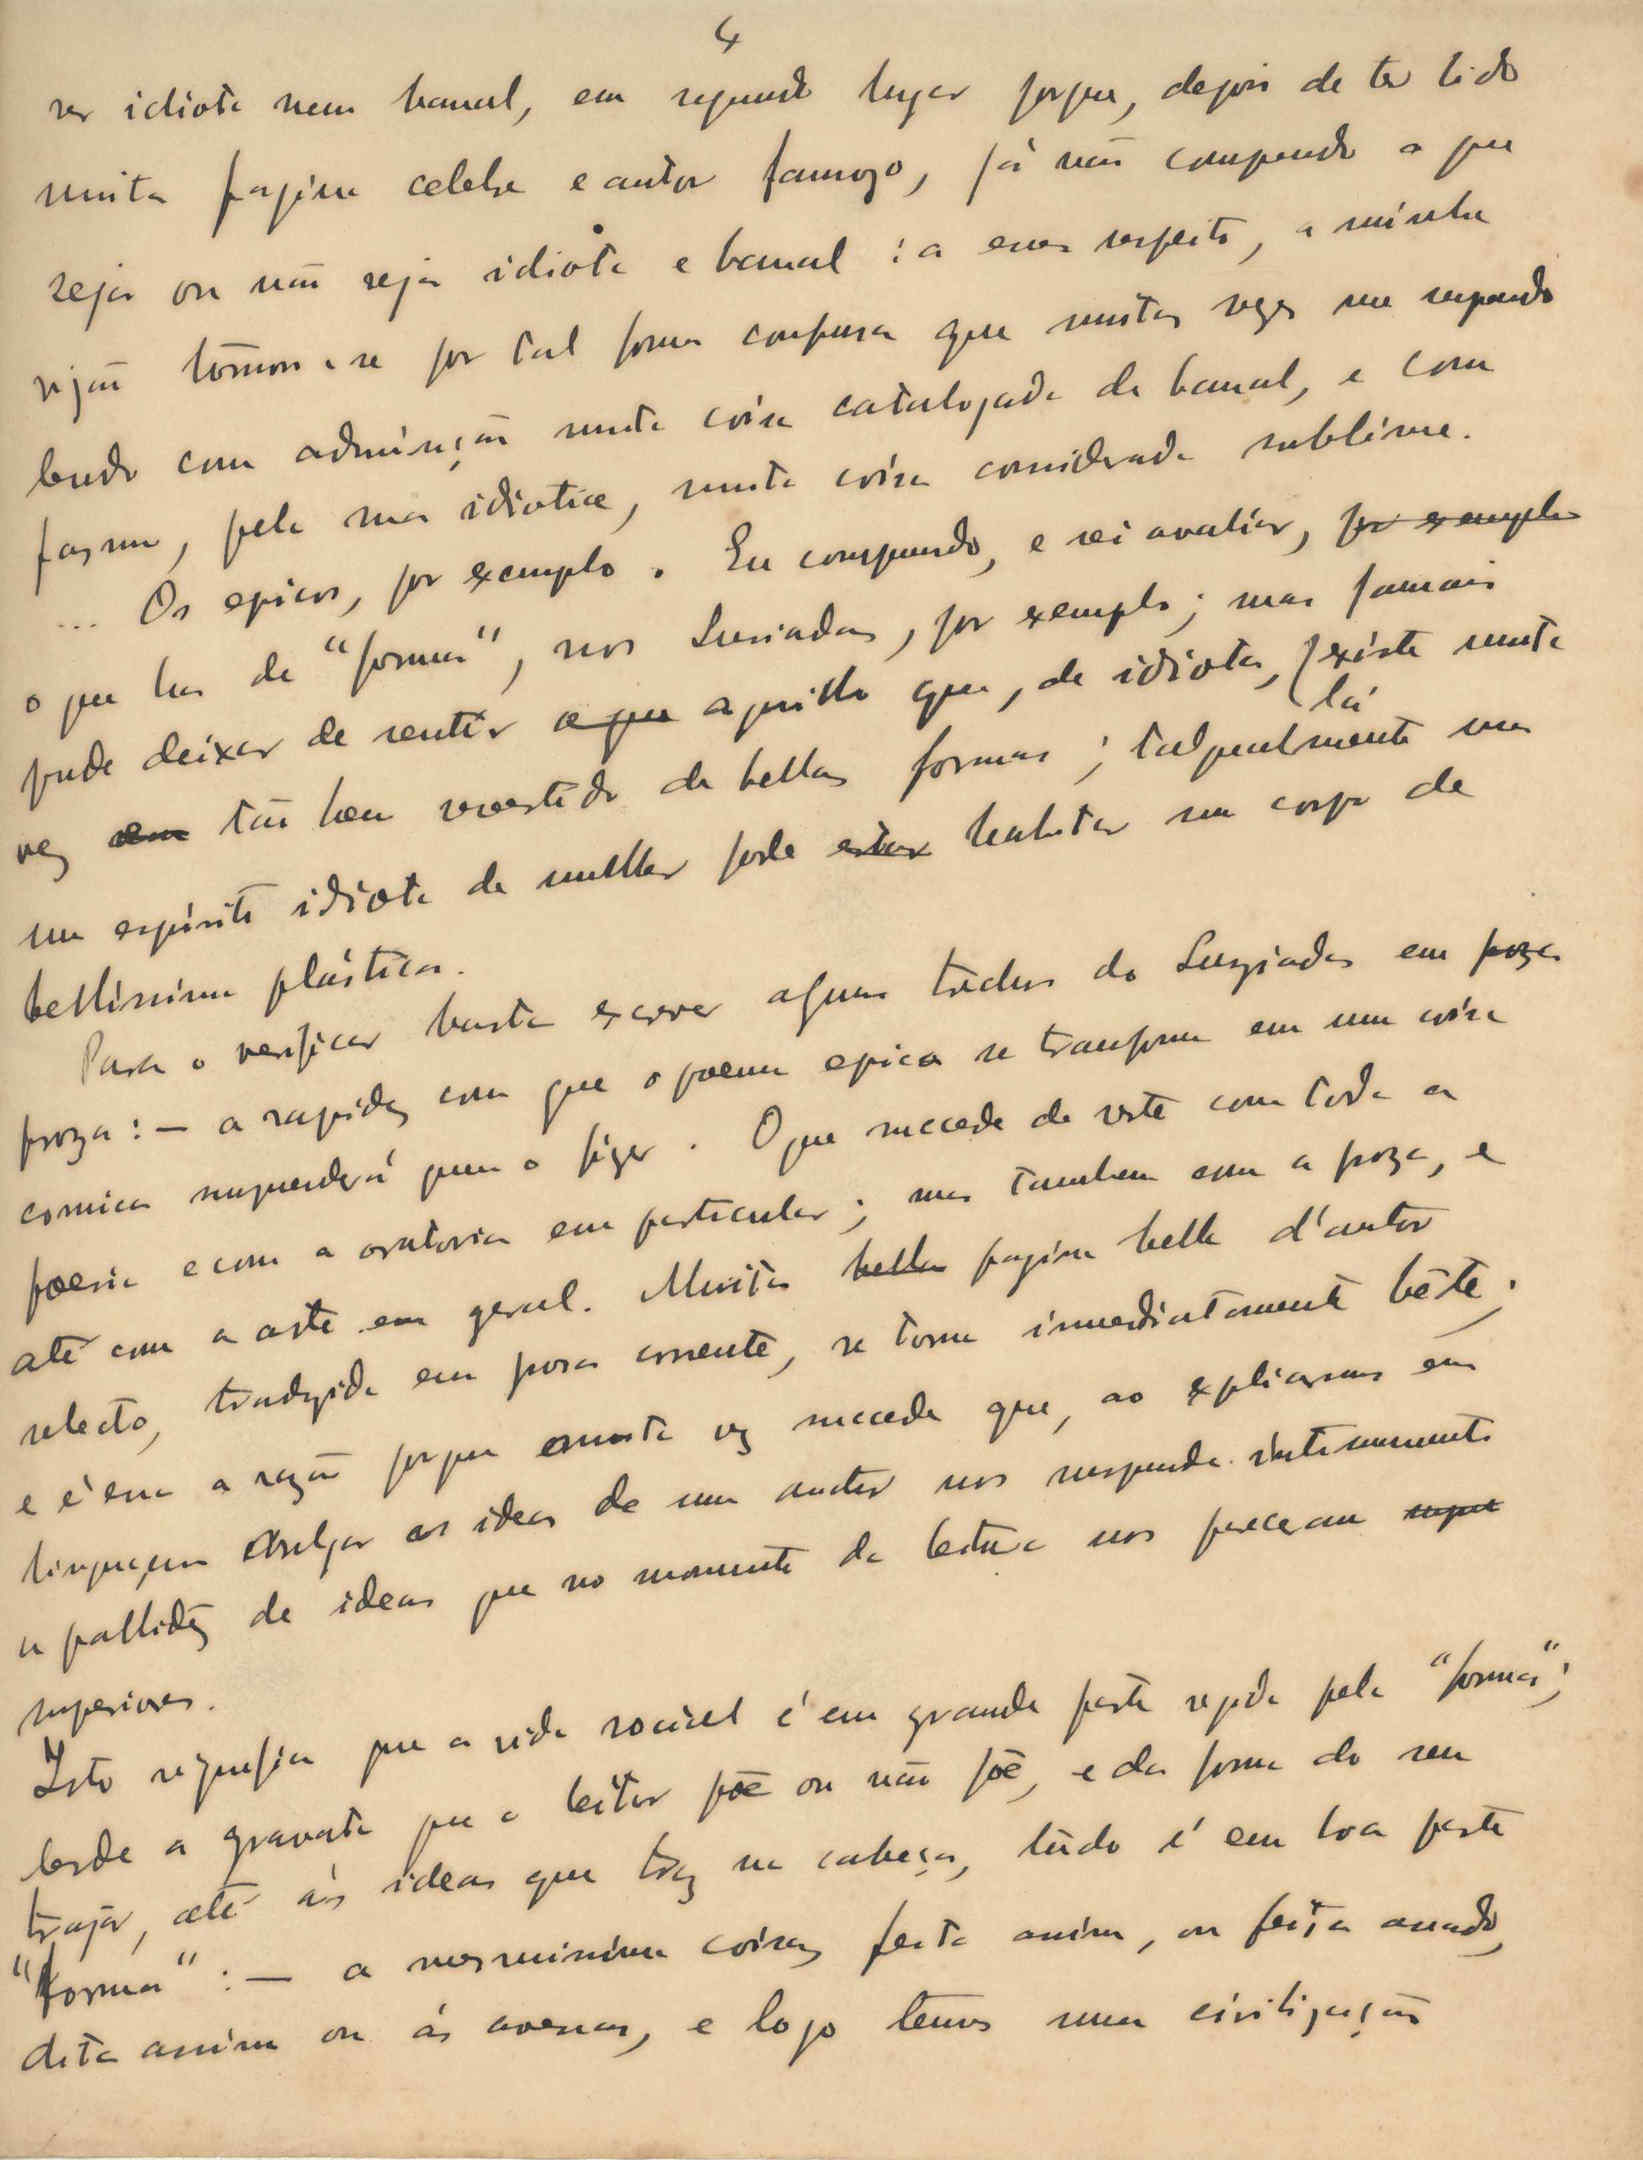 4
ser idiota nem banal, em segundo lugar porque, depois de ter lido
muita pagina celebre e autor famozo, já não comprehendo o que
seja ou não seja idiota e banal : a esse respeito, a minha
visão tornou-se por tal forma confusa que muitas vezes me surprehendo
lendo com admiração muita coisa catalogada de banal, e com
pasmo, pela sua idiotice, muita coisa considerada sublime.
... Os epicos, por exemplo. Eu comprehendo, e sei avaliar, por exemplo
o que ha de "forma", nos Lusiadas, por exemplo; mas jamais
pude deixar de sentir o que aquillo que, de idiota, existe muita
lá
vez em tão bem revestido de bellas formas ; talqualmente como
um espirito idiota de mulher pode estar habitar um corpo de
bellissima plástica.
Para o verificar basta escrever alguns trechos do Luziadas em poza
proza : — a rapidez com que o poema epico se transforma em uma coisa
comica surprenderá quem o fizer. O que succede de resto com toda a
poesia e com a oratoria em particular ; mas tambem com a proza, e
até com a arte em geral. Muita bella pagina bella d'autor
selecto, traduzida em prosa corrente, se torna immediatamente bête ;
e é essa a razão porque muita vez succede que, ao explicarmos em
linguagem vulgar as ideas de um auctor nos surprenda intimamente
a pallidez de ideas que no momento da leitura nos pareceram super
superiores.
Isto significa que a vida social é em grande parte regida pela "forma";
desde a gravata que o leitor põe ou não põe, e da forma do seu
trajar, até ás ideas que traz na cabeça, tudo é em boa parte
"forma" : — a mesmissima coisa, feita assim, ou feita assado,
dita assim ou ás avessas, e logo temos uma civilização